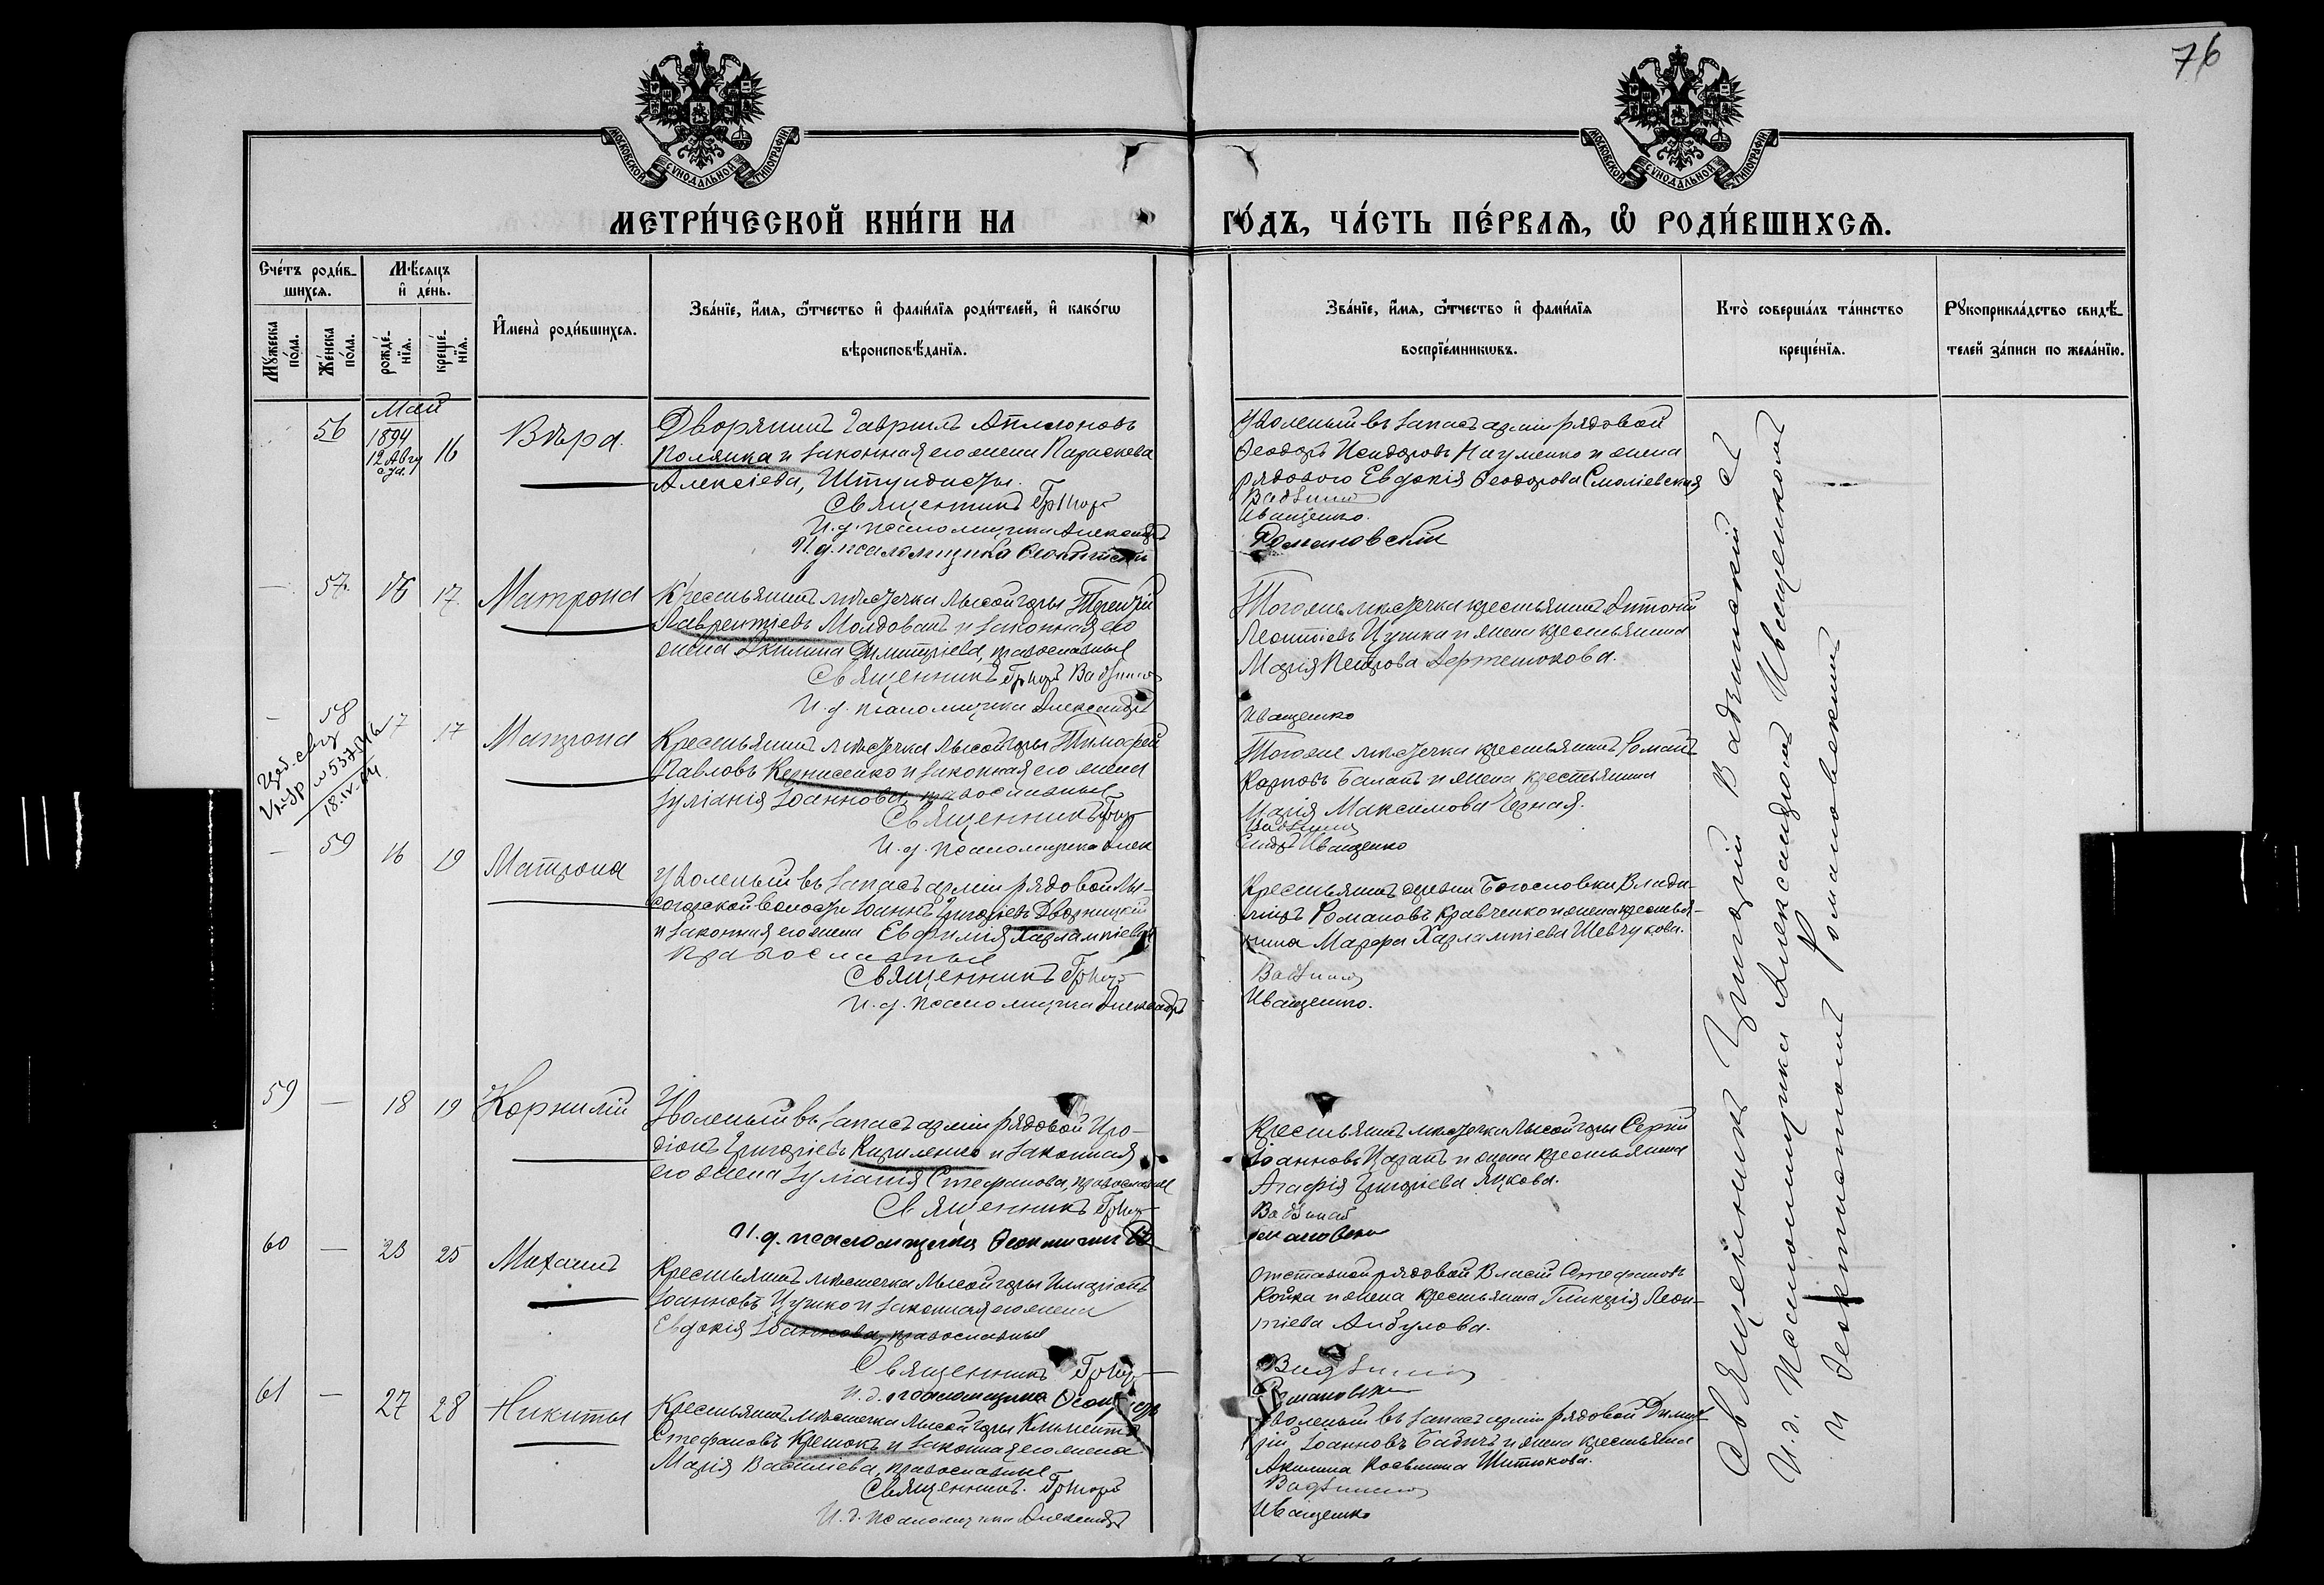 76
МОСКОВСКОЙ СѴНОДАЛЬНОЙ ТИПОГРАФІИ
МОСКОВСКОЙ СѴНОДАЛЬНОЙ ТИПОГРАФІИ
МЕТРИ́ЧЕСКОЙ КНИ́ГИ НА
ГО́ДЪ, ЧА́СТЬ ПЕ́РВАѦ, Ѡ҆ РОДИ́ВШИХСѦ.
Сче́тъ роди́в-
шихсѧ.
Мꙋ́жеска
по́ла.
Же́нска
по́ла.
Мѣ́сѧцъ
и҆ де́нь.
рожде́-
нїѧ.
креще́-
нїѧ.
И҆мена̀ роди́вшихсѧ.
Зва́нїе, и҆́мѧ, ѻ҆́тчество и҆ фами́лїѧ роди́телей, и҆ како́гѡ
вѣроисповѣ́данїѧ.
Зва́нїе, и҆́мѧ, ѻ҆́тчество и҆ фами́лїѧ
воспрїе́мникѡвъ.
Кто̀ соверша́лъ та́инство
креще́нїѧ.
Рꙋкоприкла́дство свидѣ́-
телей за́писи по жела́нїю.
Май
56
1894
12 Авгу
года.
16
Вѣра.
Дворянинъ Гавріилъ Апполоновъ
Полянка и законная его жена Параскева
Алексіева, Штундисты.
Священникъ Григор
И.д. псаломщика Александръ
И.д. псаломщика Феоктистъ
Уволеный въ запасъ арміи рядовой
Феодоръ Исидоровъ Науменко и жена
рядового Евдокія Феодорова Смоліевская
Вадзинскій
Иващенко.
Романовскій
57.
16
17.
Матрона
Крестьянинъ мѣстечка Лысой горы Терентій
Лаврентіевъ Молдованъ и законная его
жена Акилина Димитріева, православные
Священникъ Григор Вадзинскій
И.д. псаломщика Александръ
Того же мѣстечка крестьянинъ Антоній
Леонтіевъ Цушка и жена крестьянина
Марія Петрова
Иващенко
58
17
17
Матрона
18.IV.
Крестьянинъ мѣстечка Лысой горы Тимофей
Павловъ и законная его жена
Іуліанія Іоаннова, православные
Священникъ Григор
И.д. псаломщика Алек
Того же мѣстечка крестьянинъ Романъ
Карповъ Баланъ и жена крестьянина
Марія Максимова Черная.
Вадзинскій
сандръ Иващенко
59
16
19
Матрона
Уволеный въ запасъ арміи рядовой Лы-
согорской волости Іоаннъ Григоріевъ Дворницкій
и законная его жена Евфимія Харлампіева
православные
Священникъ Григор
И.д. псаломщика Александръ
Крестьянинъ деревни Богословки Влади-
міръ Романовъ Кравченко и жена крестья-
нина Марфа Харлампіева Шевчукова.
Вадзинскій
Иващенко.
59
18
19
Корнилій
Уволеный въ запасъ арміи рядовой Иро-
діонъ Григоріевъ Кириленко и законная
его жена Іуліанія Стефанова, православные
Священникъ Григор
И.д. псаломщика Феоктистъ
Крестьянинъ мѣстечка Лысой горы Сергій
Іоанновъ Царанъ и жена крестьянина
Агафія Григоріева Яцкова.
Вадзинскій
60
23
25
Михаилъ
Крестьянинъ мѣстечка Лысой горы Иларіонъ
Іоанновъ Цушко и законная его жена
Евдокія Іоаннова, православные
Священникъ Григор
И.д. псаломщика
Отставной рядовой Власій Стефановъ
Койка и жена крестьянина Гликерія Леон-
тіева Анбулова.
Вадзинскій
Романовскій
61
27
28
Никита
Крестьянинъ мѣстечка Лысой горы Климентъ
Стефановъ и законная его жена
Марія Василіева, православные
Священникъ Григорій
И.д. псаломщика Александръ
Уволеный въ запасъ арміи рядовой Димит-
рій Іоанновъ Бабичъ и жена крестьянина
Акилина Косьмина Шитюкова.
Вадзинскій
Иващенко
Священникъ Григорій Вадзинскій съ
И.д. Псаломщика Александромъ Иващенкомъ
и Феоктистомъ Романовскимъ